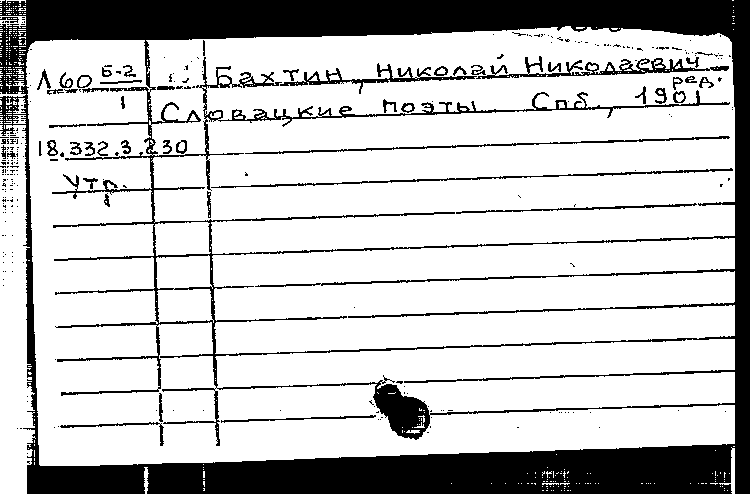 Л60 Б-2 Бахтин, Николай Николаевич
ред.
1 Словацкие поэты Спб, 1901
18.332.3.230
Утр.